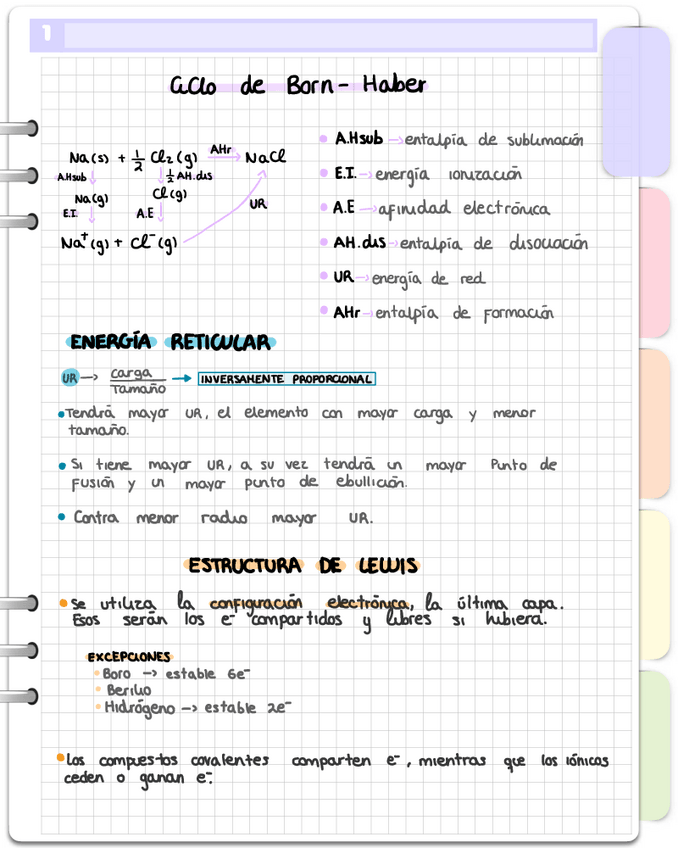 1
Ciclo de Born-Haber
Na(s) + 1/2 Cl₂(g) AHr → NaCl
A.Hsub ↓ ↓ 1/2 AH.dis
Na(g) Cl(g)
E.I. ↓ A.E ↓ UR
Na⁺(g) + Cl⁻(g)
• A.Hsub → entalpía de sublimación
• E.I. → energía ionización
• A.E → afinidad electrónica
• AH.dis → entalpía de disociación
• UR → energía de red
• AHr → entalpía de formación
ENERGÍA RETICULAR
UR → carga/Tamaño → INVERSAMENTE PROPORCIONAL
• Tendrá mayor UR, el elemento con mayor carga y menor
tamaño.
• Si tiene mayor UR, a su vez tendrá un mayor Punto de
Fusión y un mayor punto de ebullición.
• Contra menor radio mayor UR.
ESTRUCTURA DE LEWIS
• Se utiliza la configuración electrónica, la última capa.
Esos serán los e⁻ compartidos y libres si hubiera.
EXCEPCIONES
• Boro → estable 6e⁻
• Berilio
• Hidrógeno → estable 2e⁻
• Los compuestos covalentes comparten e⁻, mientras que los iónicos
ceden o ganan e⁻.